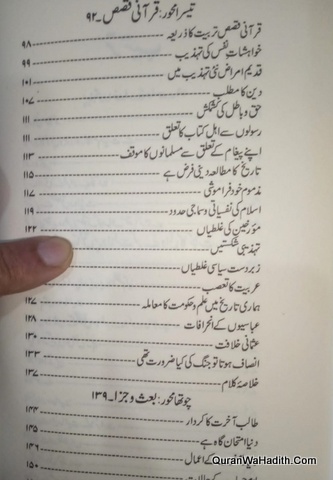 تیسرا محور: قرآنی قصص ۔ ۹۲
قرآنی قصص تربیت کا ذریعہ ۹۸
خواہشات نفس کی تہذیب ۹۹
قدیم امراض نئی تہذیب میں ۱۰۱
دین کا مطلب ۱۰۷
حق و باطل کی کشمکش ۱۱۱
رسولوں سے اہل کتاب کا تعلق ۱۱۱
اپنے پیغام کے تعلق سے مسلمانوں کا موقف ۱۱۳
تاریخ کا مطالعہ دینی فرض ہے ۱۱۵
مذموم خود فراموشی ۱۱۷
اسلام کی نفسیاتی و سماجی حدود ۱۱۹
مؤرخین کی غلطیاں ۱۲۲
تہذیبی شکستیں
زبردست سیاسی غلطیاں
عربیت کا تعصب
ہماری تاریخ میں علم و حکومت کا معاملہ ۱۲۷
عباسیوں کے انحرافات ۱۲۸
عثمانی خلافت ۱۳۰
انصاف ہوتا تو جنگ کی کیا ضرورت تھی ۱۳۳
خلاصۂ کلام ۱۳۷
چوتھا محور: بعث و جزا ۔ ۱۳۹
طالب آخرت کا کردار ۱۴۴
دنیا امتحان گاہ ہے ۱۴۵
کے اعمال ۱۴۶
۱۵۰
QuranWaHadith.Com